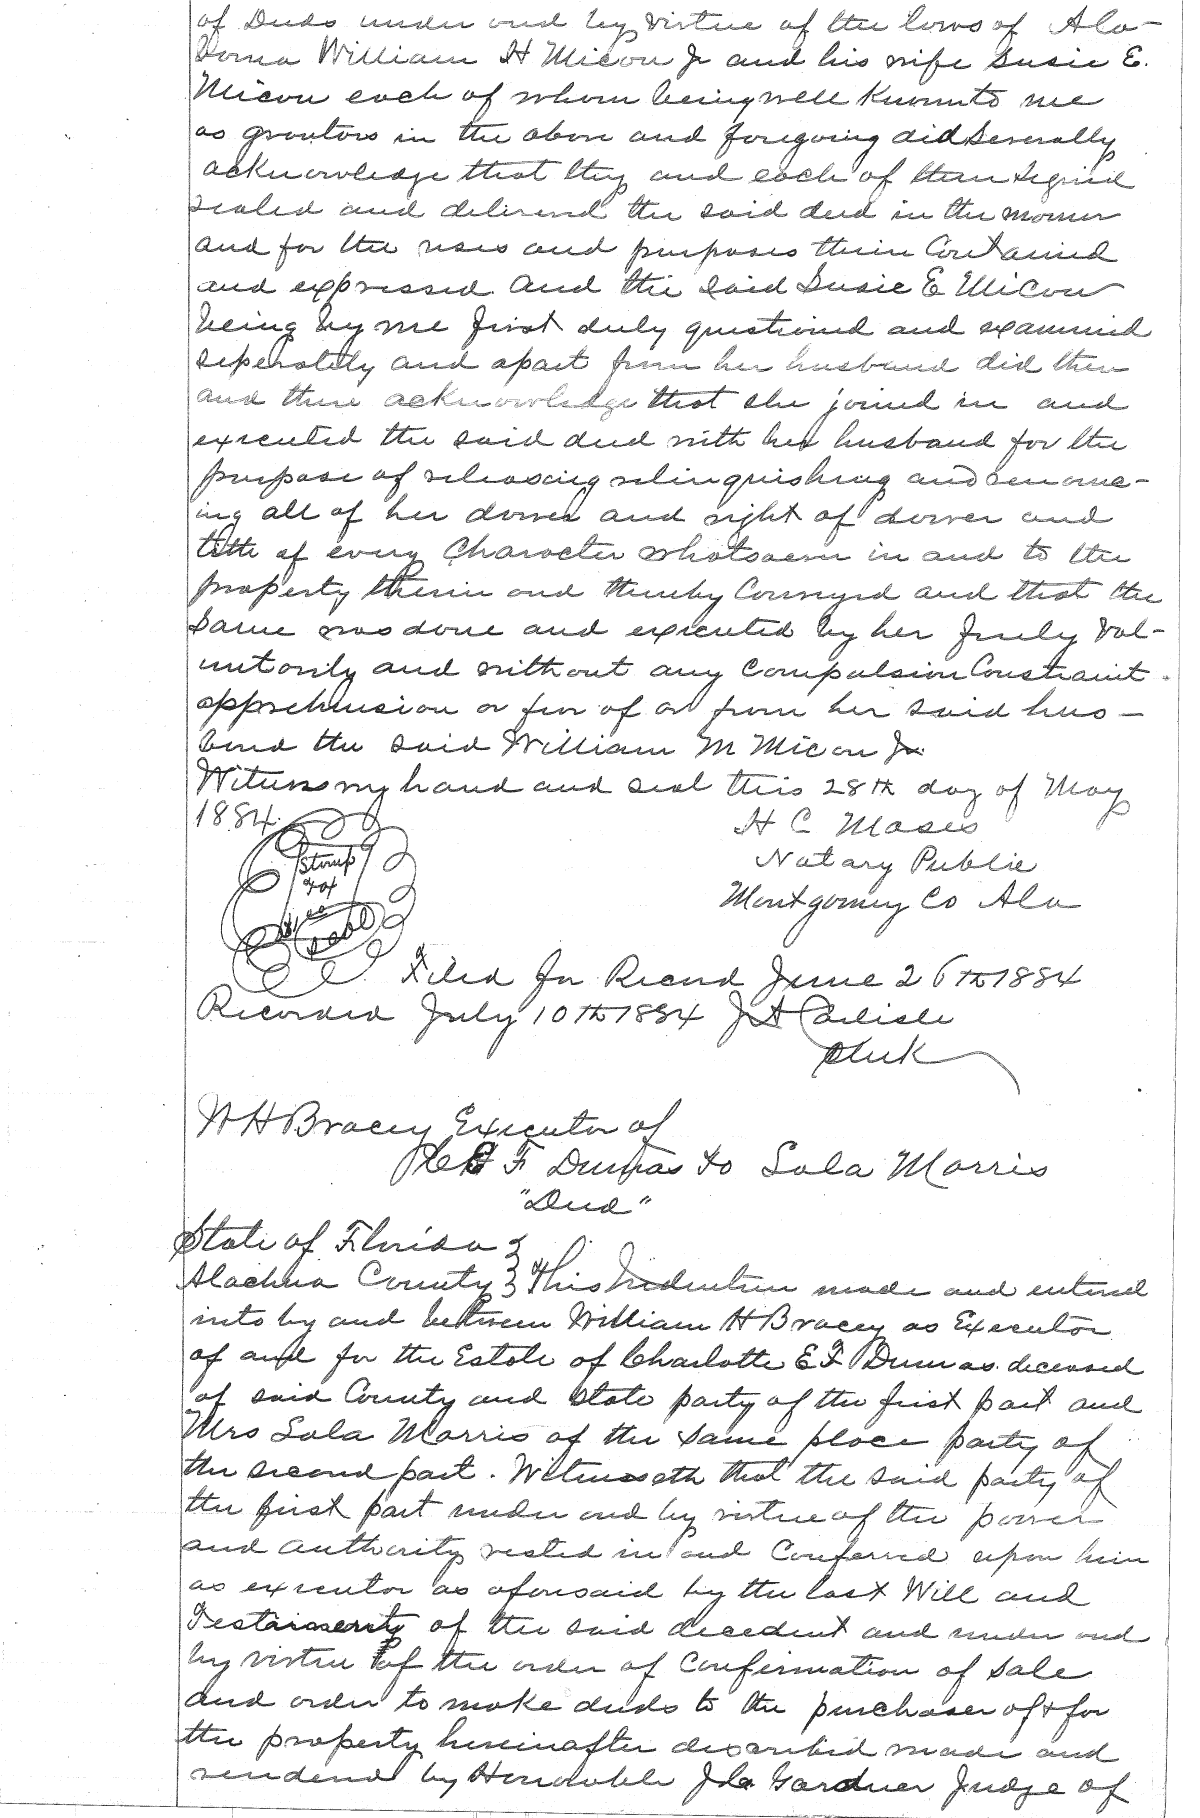 of Deeds under and by virtue of the laws of Ala-
bama William H Micou Jr and his wife Susie E.
Micou each of whom being well known to me
as grantors in the above and foregoing did Severally
acknowledge that they and each of them signed
sealed and delivered the said deed in the manner
and for the uses and purposes therein Contained
and expressed. And the said Susie E Micou
being by me first duly questioned and examined
seperately and apart from her husband did then
and there acknowledge that she joined in and
executed the said deed with her husband for the
purpose of releasing relinquishing and renounc-
ing all of her dower and right of dower and
title of every Character whatsoever in and to the
property therein and thereby Conveyed and that the
Same was done and executed by her freely Vol-
untarily and without any Compulsion Constraint
apprehension or fear of or from her said hus-
band the said William M Micou Jr.
Witness my hand and seal this 28th day of May
1884.
H C Moses
Notary Public
Montgomery Co Ala
Stamp
Seal
Filed for Record June 26th 1884
Recorded July 10th 1884 J A Carlisle
Clerk
W H Bracey Executor of
F Dumas to Lola Morris
"Deed"
State of Florida }
Alachua County } This Indenture made and entered
into by and between William H Bracey as Executor
of and for the Estate of Charlotte E F Dumas deceased
of said County and State party of the first part and
Mrs Lola Morris of the same place party of
the second part. Witnesseth that the said party of
the first part under and by virtue of the power
and authority vested in and Conferred upon him
as executor as aforesaid by the last Will and
Testament of the said decedent and under and
by virtue of the order of Confirmation of Sale
and order to make deeds to the purchaser of & for
the property hereinafter described made and
rendered by Honorable Gardner Judge of